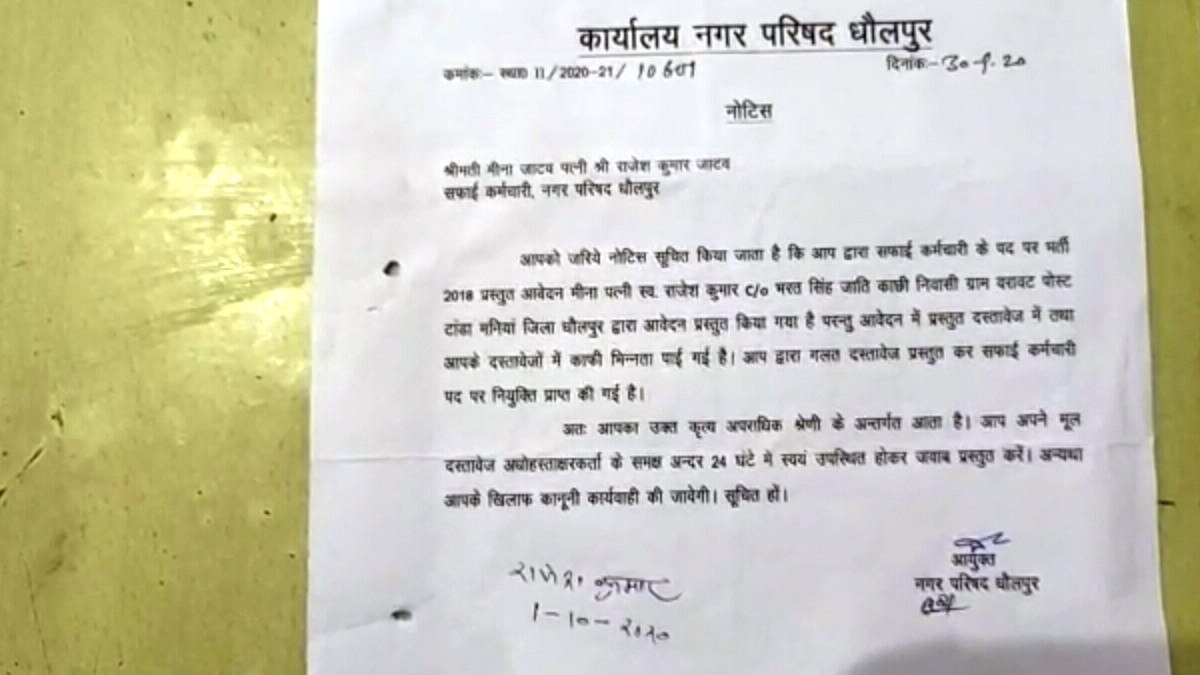 कार्यालय नगर परिषद धौलपुर
क्रमांकः- स्था0 II/2020-21/ 10601
दिनांकः- 30-9-20
नोटिस
श्रीमती मीना जाटव पत्नी श्री राजेश कुमार जाटव
सफाई कर्मचारी, नगर परिषद धौलपुर
आपको जरिये नोटिस सूचित किया जाता है कि आप द्वारा सफाई कर्मचारी के पद पर भर्ती
2018 प्रस्तुत आवेदन मीना पत्नी स्व. राजेश कुमार C/o भरत सिंह जाति काछी निवासी ग्राम दरावट पोस्ट
टांडा मनियां जिला धौलपुर द्वारा आवेदन प्रस्तुत किया गया है परन्तु आवेदन में प्रस्तुत दस्तावेज में तथा
आपके दस्तावेजों में काफी भिन्नता पाई गई है। आप द्वारा गलत दस्तावेज प्रस्तुत कर सफाई कर्मचारी
पद पर नियुक्ति प्राप्त की गई है।
अतः आपका उक्त कृत्य अपराधिक श्रेणी के अन्तर्गत आता है। आप अपने मूल
दस्तावेज अधोहस्ताक्षरकर्ता के समक्ष अन्दर 24 घंटे में स्वयं उपस्थित होकर जवाब प्रस्तुत करें। अन्यथा
आपके खिलाफ कानूनी कार्यवाही की जावेगी। सूचित हों।
आयुक्त
नगर परिषद धौलपुर
राजेश कुमार
1-10-2020